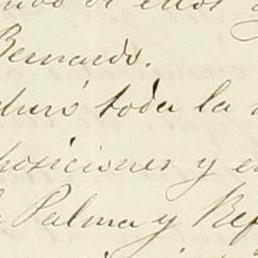 de ellos
Bernardo.
duró toda la
posiciones y e
Palma y Ref